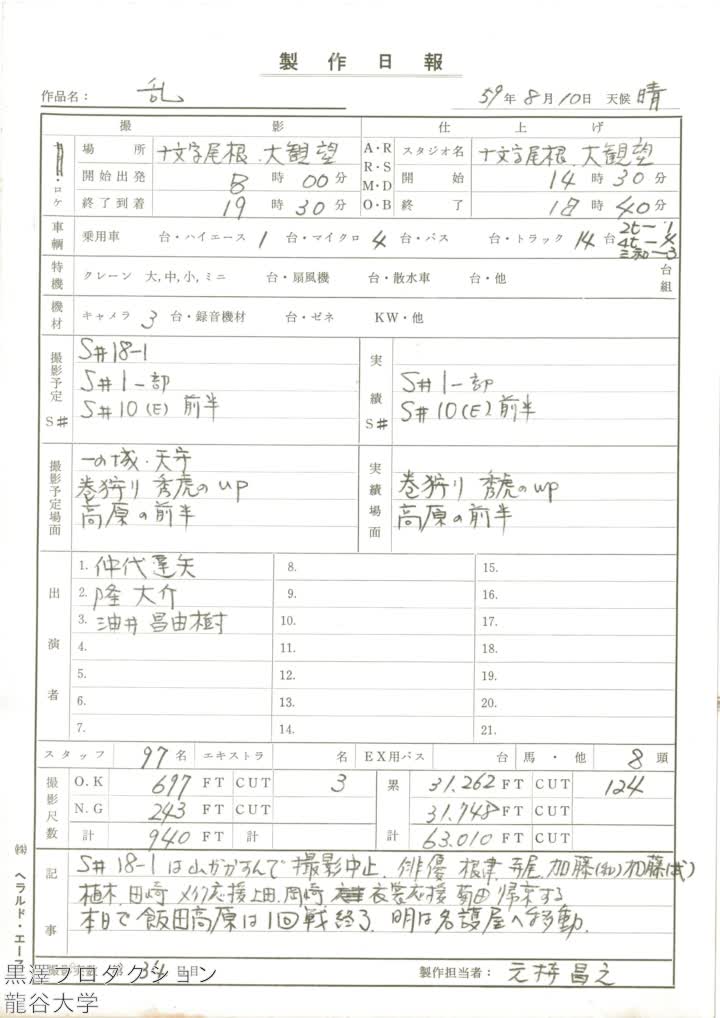 製作日報
作品名: 乱 59年8月10日 天候 晴
撮影 仕上げ
・ロケ 場所 十文字尾根.大観望 A・R R・S M・D O・B スタジオ名 十文字尾根.大観望
開始出発 8時00分 開始 14時30分
終了到着 19時30分 終了 18時40分
車輌 乗用車 台・ハイエース 1 台・マイクロ 4 台・バス 台・トラック 14 台 2t-1 4t- 三和-3
特機 クレーン 大,中,小,ミニ 台・扇風機 台・散水車 台・他 台組
機材 キャメラ 3 台・録音機材 台・ゼネ KW・他
撮影予定 S# S#18-1 実績 S#
S#1一部 S#1一部
S#10(E)前半 S#10(E)前半
撮影予定場面 一の城・天守 実績場面
巻狩り 秀虎のup 巻狩り 秀虎のup
高原の前半 高原の前半
出演者 1. 仲代達矢 8. 15.
2. 隆大介 9. 16.
3. 油井昌由樹 10. 17.
4. 11. 18.
5. 12. 19.
6. 13. 20.
7. 14. 21.
スタッフ 97名 エキストラ 名 EX用バス 台 馬・他 8頭
撮影尺数 O.K 697 FT CUT 3 累計 31.262 FT CUT 124
N.G 243 FT CUT 31.748 FT CUT
計 940 FT CUT 63.010 FT CUT
記事 S#18-1は山がかすんで撮影中止.俳優 根津.寺尾.加藤(和)加藤(武)
植木.田崎 メイク応援上田.岡崎 衣装応援 菊田 帰京する
本日で飯田高原は1回戦終了.明は名護屋へ移動.
撮影実数 第34日目 製作担当者: 元持昌之
㈱ヘラルド・エース
黒澤プロダクション
龍谷大学